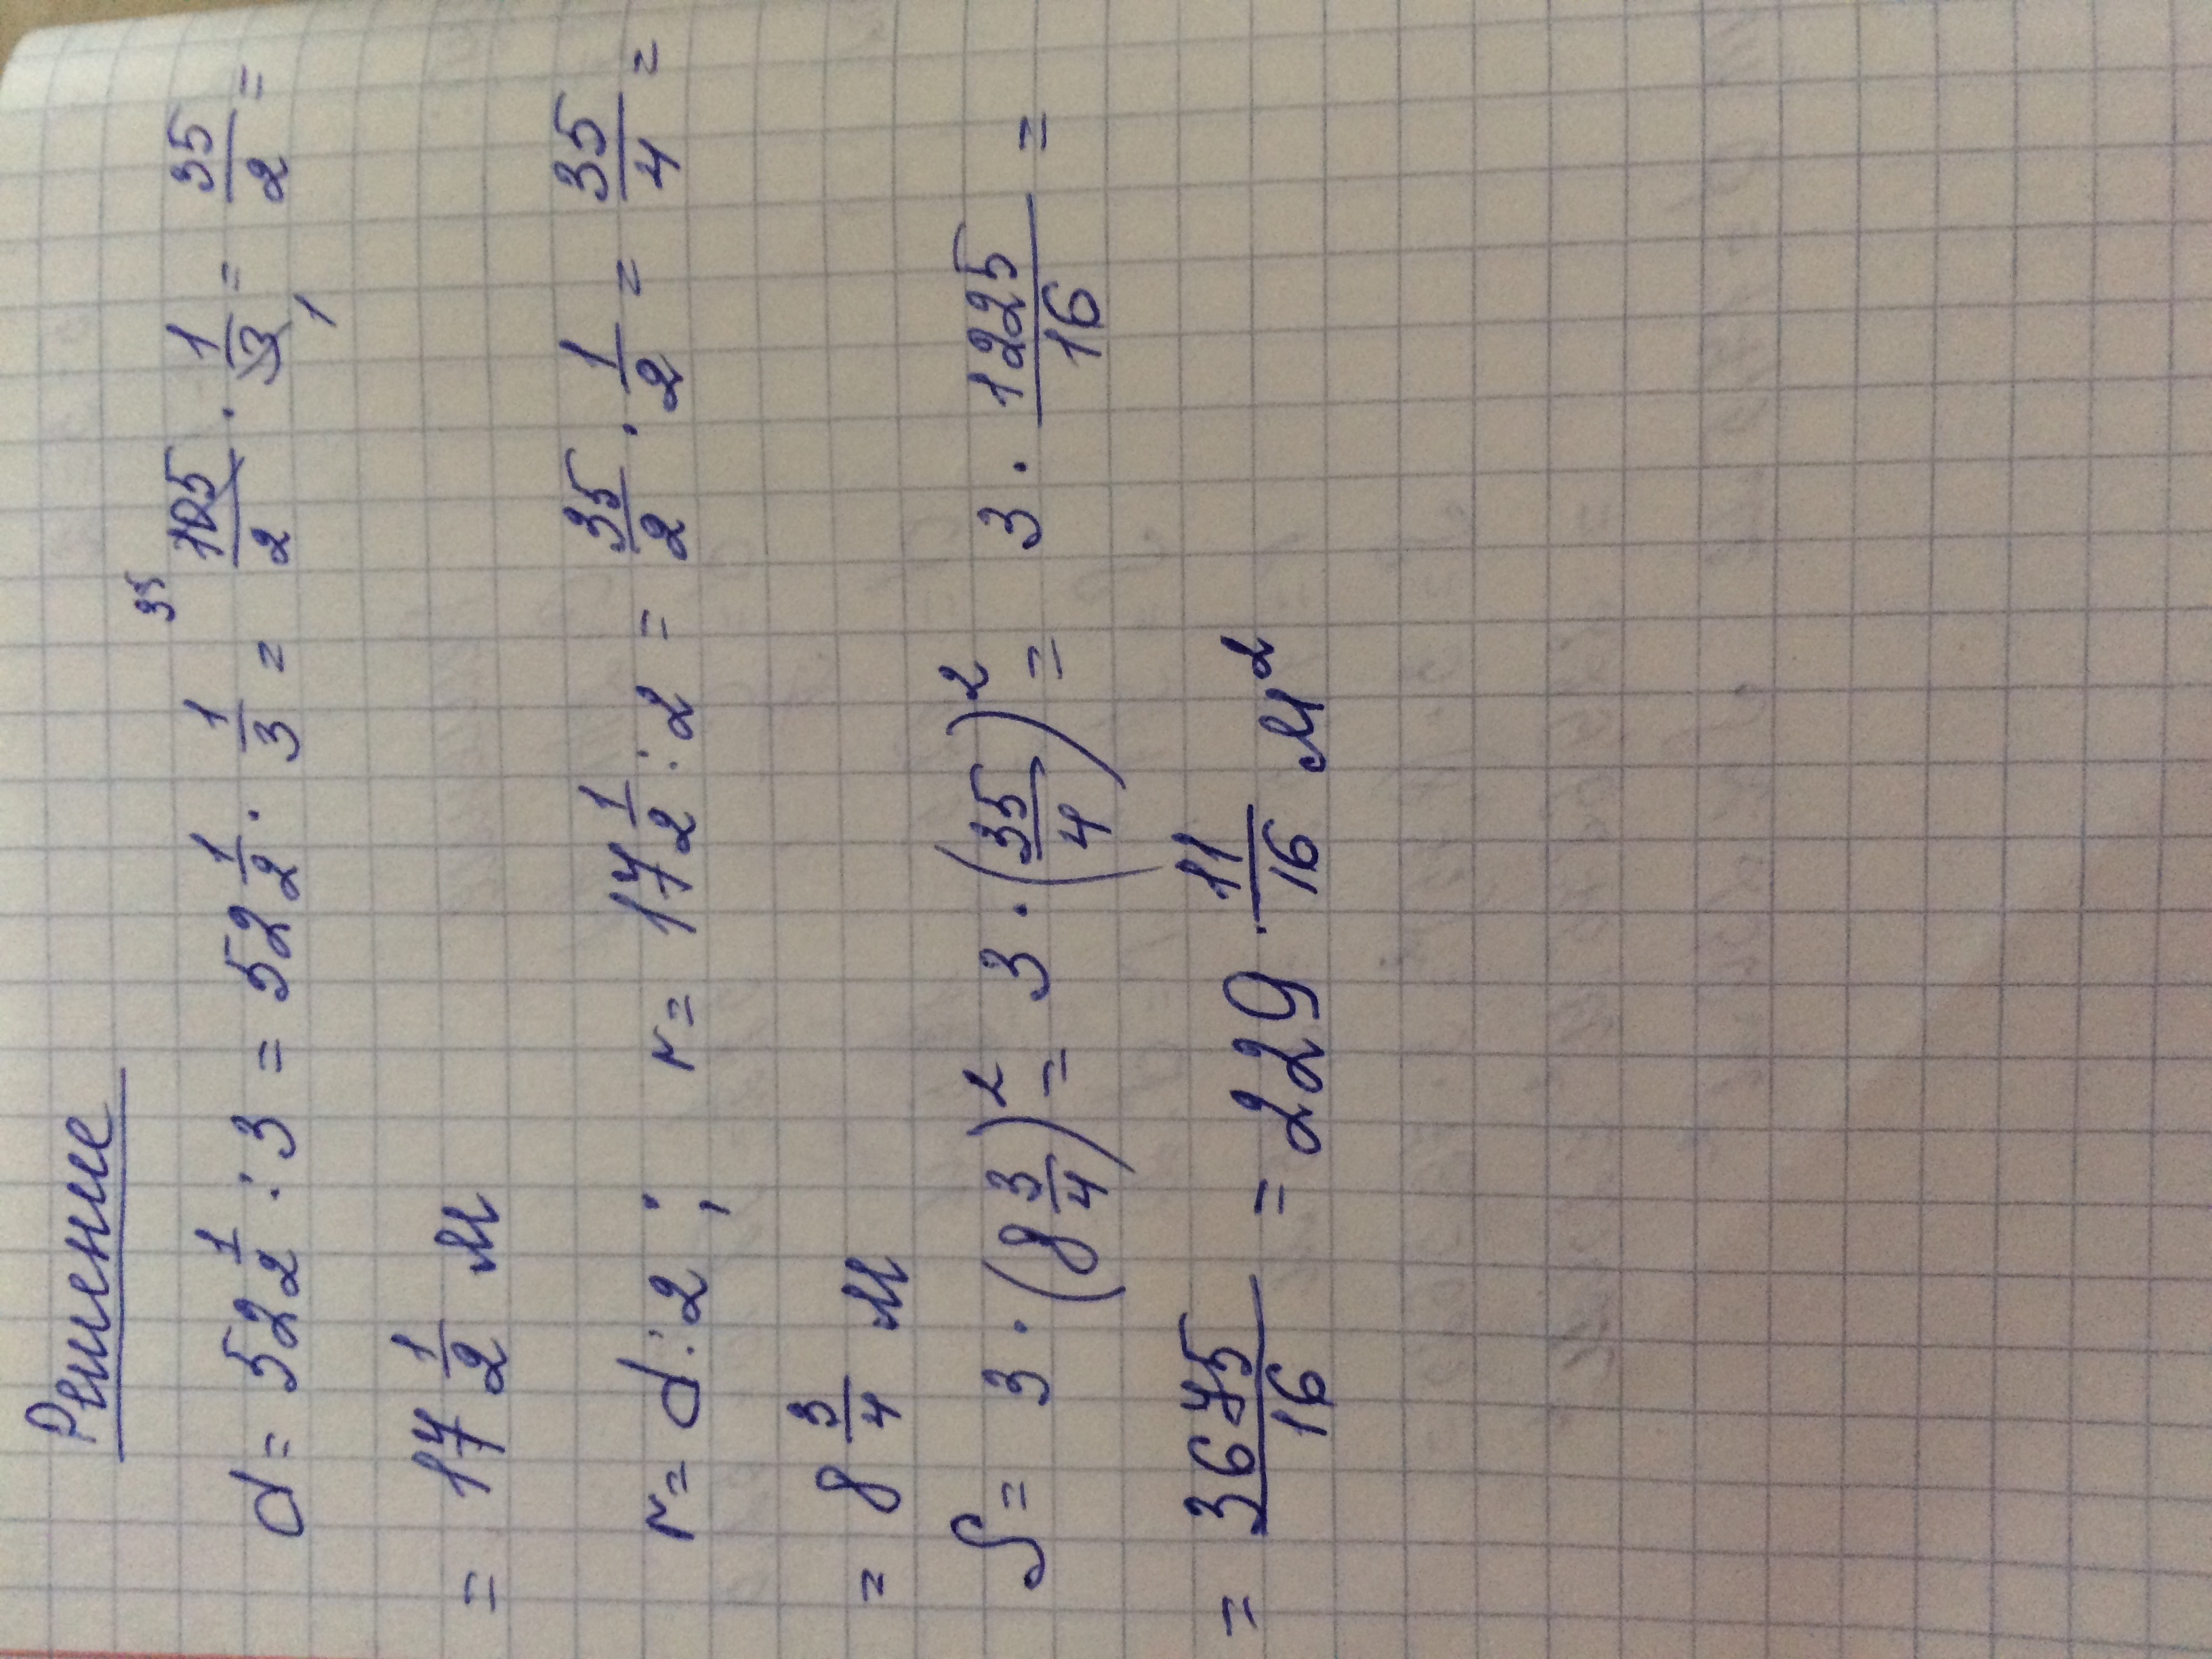 Решение
d = 52 1/2 : 3 = 52 1/2 · 1/3 = 35 105/2 · 1/3 1 = 35/2 =
= 17 1/2 м
r = d : 2 ; r = 17 1/2 : 2 = 35/2 · 1/2 = 35/4 =
= 8 3/4 м
S = 3 · (8 3/4)² = 3 · (35/4)² = 3 · 1225/16 =
= 3675/16 = 229 11/16 м²